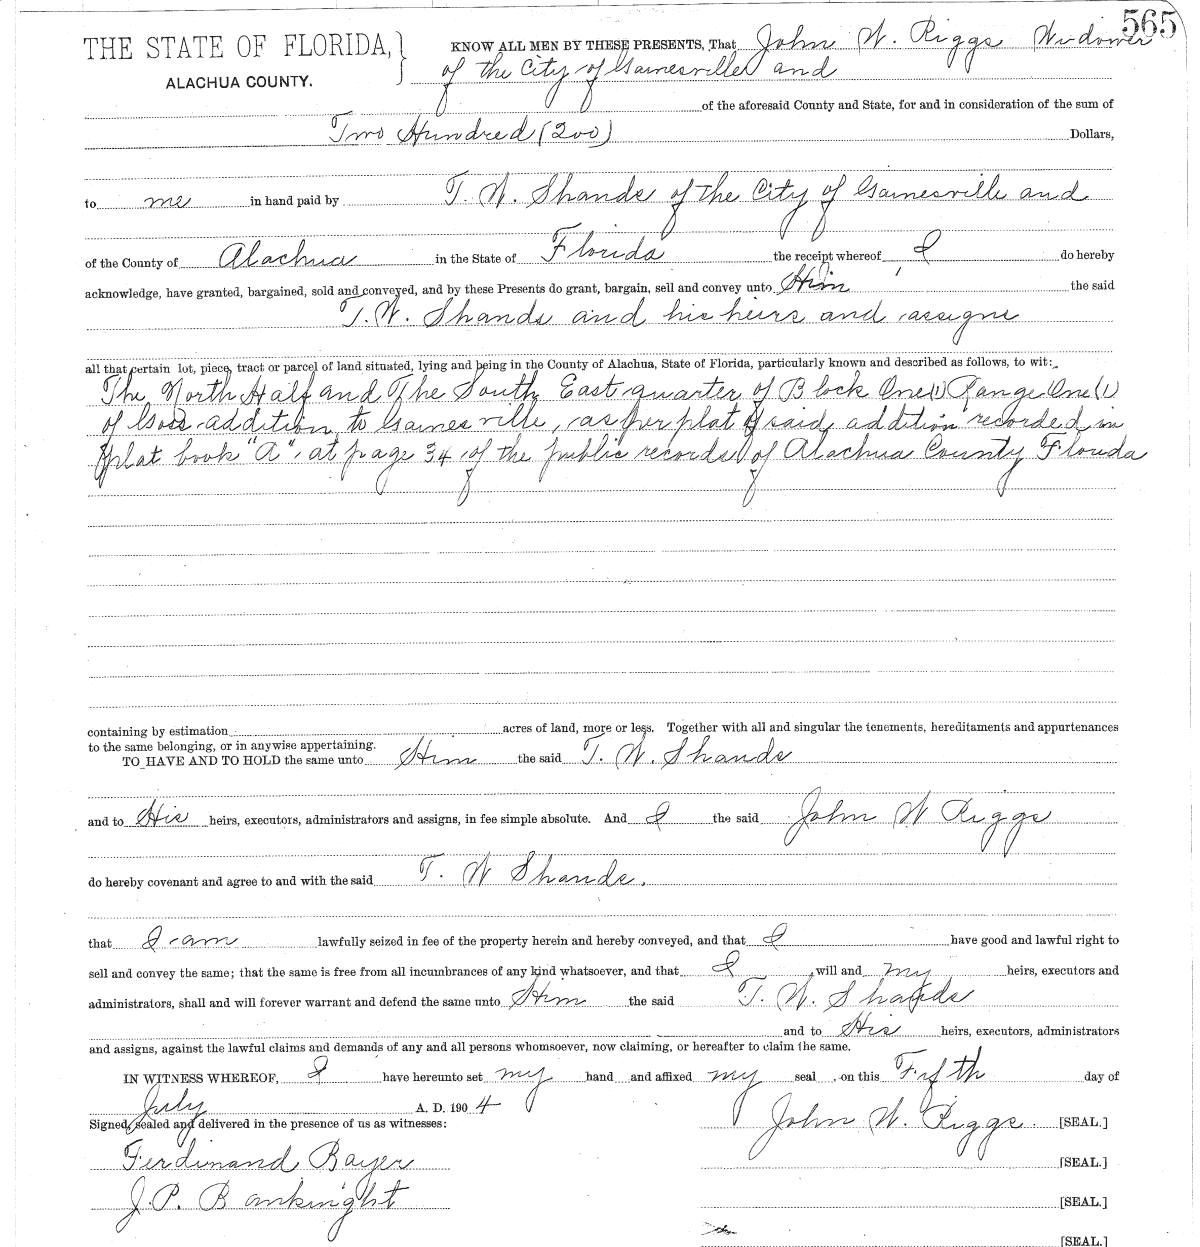 565
THE STATE OF FLORIDA,
ALACHUA COUNTY.
KNOW ALL MEN BY THESE PRESENTS, That John W. Riggs Widower
of the City of Gainesville and
of the aforesaid County and State, for and in consideration of the sum of
Two Hundred (200) Dollars,
to me in hand paid by T. W. Shands of the City of Gainesville and
of the County of Alachua in the State of Florida the receipt whereof I do hereby
acknowledge, have granted, bargained, sold and conveyed, and by these Presents do grant, bargain, sell and convey unto Him the said
T. W. Shands and his heirs and assigns
all that certain lot, piece, tract or parcel of land situated, lying and being in the County of Alachua, State of Florida, particularly known and described as follows, to wit:
The North Half and The South East quarter of Block One (1) Range One (1)
of addition to Gainesville, as per plat of said addition recorded in
plat book "A", at page 34, of the public records of Alachua County Florida
containing by estimation acres of land, more or less. Together with all and singular the tenements, hereditaments and appurtenances
to the same belonging, or in anywise appertaining.
TO HAVE AND TO HOLD the same unto Him the said T. W. Shands
and to His heirs, executors, administrators and assigns, in fee simple absolute. And I the said John W Riggs
do hereby covenant and agree to and with the said T. W Shands.
that I am lawfully seized in fee of the property herein and hereby conveyed, and that I have good and lawful right to
sell and convey the same; that the same is free from all incumbrances of any kind whatsoever, and that I will and my heirs, executors and
administrators, shall and will forever warrant and defend the same unto Him the said T. W. Shands
and to His heirs, executors, administrators
and assigns, against the lawful claims and demands of any and all persons whomsoever, now claiming, or hereafter to claim the same.
IN WITNESS WHEREOF, I have hereunto set my hand and affixed my seal on this Fifth day of
July A. D. 1904
Signed, sealed and delivered in the presence of us as witnesses:
John W. Riggs. [SEAL.]
Ferdinand Bayer [SEAL.]
J. P. Bauknight [SEAL.]
[SEAL.]